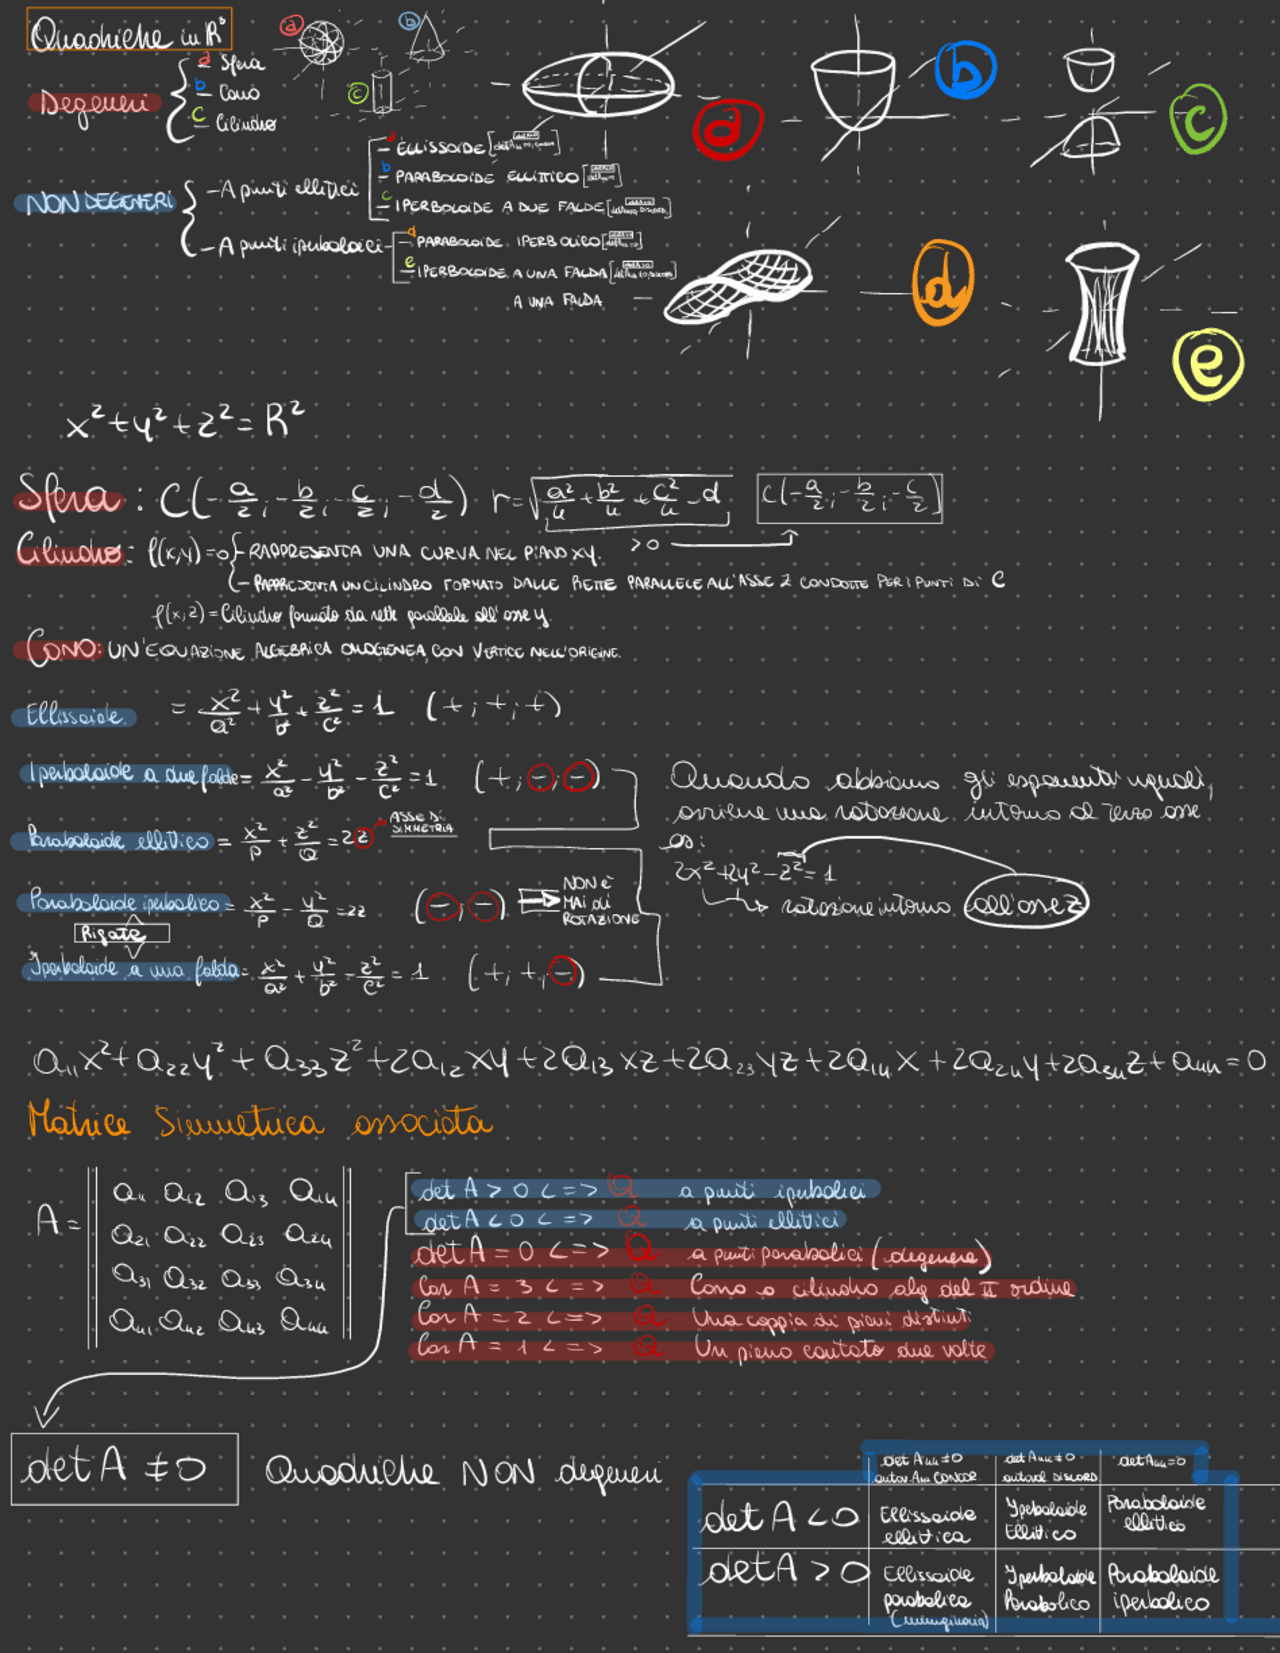 Quadriche in R³
a b
Degeneri
a - Sfera
b - Cono
c - Cilindro
c
a b c
NON DEGENERI
- A punti ellittici
a - ELLISSOIDE
b - PARABOLOIDE ELLITTICO
c - IPERBOLOIDE A DUE FALDE
- A punti iperbolici
d - PARABOLOIDE IPERBOLICO
e - IPERBOLOIDE A UNA FALDA
A UNA FALDA
d e
x² + y² + z² = R²
Sfera : C(-a/2 ; -b/2 ; -c/2 ; -d/2) r = √(a²/4 + b²/4 + c²/4 - d) C(-a/2 ; -b/2 ; -c/2)
> 0
Cilindro: f(x,y) = 0 - RAPPRESENTA UNA CURVA NEL PIANO XY.
- RAPPRESENTA UN CILINDRO FORMATO DALLE RETTE PARALLELE ALL'ASSE Z CONDOTTE PER I PUNTI DI C
f(x;z) = Cilindro formato da rette parallele all'asse y
CONO: UN'EQUAZIONE ALGEBRICA OMOGENEA, CON VERTICE NELL'ORIGINE.
Ellissoide = x²/a² + y²/b² + z²/c² = 1 (+,+,+)
Iperboloide a due falde = x²/a² - y²/b² - z²/c² = 1 (+,-,-)
Paraboloide ellittico = x²/P + z²/Q = 2z ASSE DI SIMMETRIA
Paraboloide iperbolico = x²/P - y²/Q = 2z (-,-) NON È MAI DI ROTAZIONE
Rigate
Iperboloide a una falda = x²/a² + y²/b² - z²/c² = 1 (+,+,-)
Quando abbiamo gli esponenti uguali,
avviene una rotazione intorno al terzo asse
es:
2x² + 2y² - z² = 1
rotazione intorno all'asse z
a₁₁x² + a₂₂y² + a₃₃z² + 2a₁₂xy + 2a₁₃xz + 2a₂₃yz + 2a₁₄x + 2a₂₄y + 2a₃₄z + a₄₄ = 0
Matrice Simmetrica associata
A =
a₁₁ a₁₂ a₁₃ a₁₄
a₂₁ a₂₂ a₂₃ a₂₄
a₃₁ a₃₂ a₃₃ a₃₄
a₄₁ a₄₂ a₄₃ a₄₄
det A > 0 <=> Q a punti iperbolici
det A < 0 <=> Q a punti ellittici
det A = 0 <=> Q a punti parabolici (degenere)
Car A = 3 <=> Q Cono o cilindro alg del II ordine
Car A = 2 <=> Q Una coppia di piani distinti
Car A = 1 <=> Q Un piano contato due volte
det A ≠ 0 Quadriche NON degeneri
det A₄₄ ≠ 0 det A₄₄ ≠ 0 det A₄₄ = 0
autov. A₄₄ CONCOR autoval DISCORD
det A < 0 Ellissoide ellittica Iperboloide Ellittico Paraboloide ellittico
det A > 0 Ellissoide parabolica (immaginaria) Iperboloide Parabolico Paraboloide iperbolico